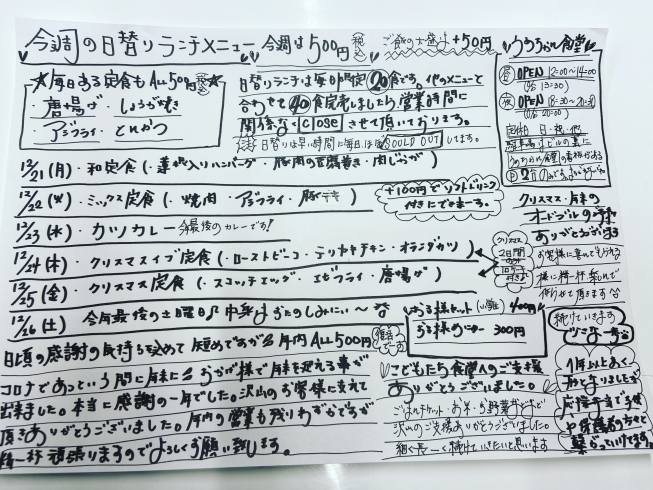 今週の日替りランチメニュー
今週は500円
税込
ご飯の大盛は+50円
うめちゃん食堂
★毎日ある定食もALL500円 税込★
・唐揚げ ・しょうが焼き
・アジフライ ・とんかつ
日替りランチは毎日限定20食です。他のメニューと
合わせて40食完売しましたら営業時間に
関係なくcloseさせて頂いております。
日替りは早い時間に毎日
SOULD OUTしてます。
昼 OPEN 12:00〜14:00
夜 OPEN 18:30〜
定休日 日・祝・他
12/21(月)・和定食(・蓮根入りハンバーグ・豚肉の豆腐巻き・肉じゃが)
12/22(火)・ミックス定食(・焼肉・アジフライ・豚テキ)
+100円でソフトドリンク
付きにできまーす。
12/23(水)・カツカレー 今年最後のカレーです!
12/24(木)・クリスマスイブ定食(・ローストビーフ・テリヤキチキン・オランダカツ)
12/25(金)・クリスマス定食(・スコッチエッグ・エビフライ・唐揚げ)
12/26(土) 今年最後の土曜日♪中身はおたのしみにぃ〜
クリスマス
2日間
クリスマス・年末の
オードブルの
ありがとうございます
お客様に喜んでもらえる
様に精一杯
作らせて頂きます
400円
300円
日頃の感謝の気持ち込めて短めですが年内ALL500円
コロナであっという間に年末に おかげ様で年末を迎える事が
出来ました。本当に感謝の一年でした。沢山のお客様に支えて
頂きありがとうございました。年内の営業も残りわずかですが
精一杯頑張りますのでよろしくお願い致します。
こどもたち食堂へのご支援
ありがとうございました。
沢山のご支援ありがとうございました
細く長〜く続けていきたいと思います
続けていきます